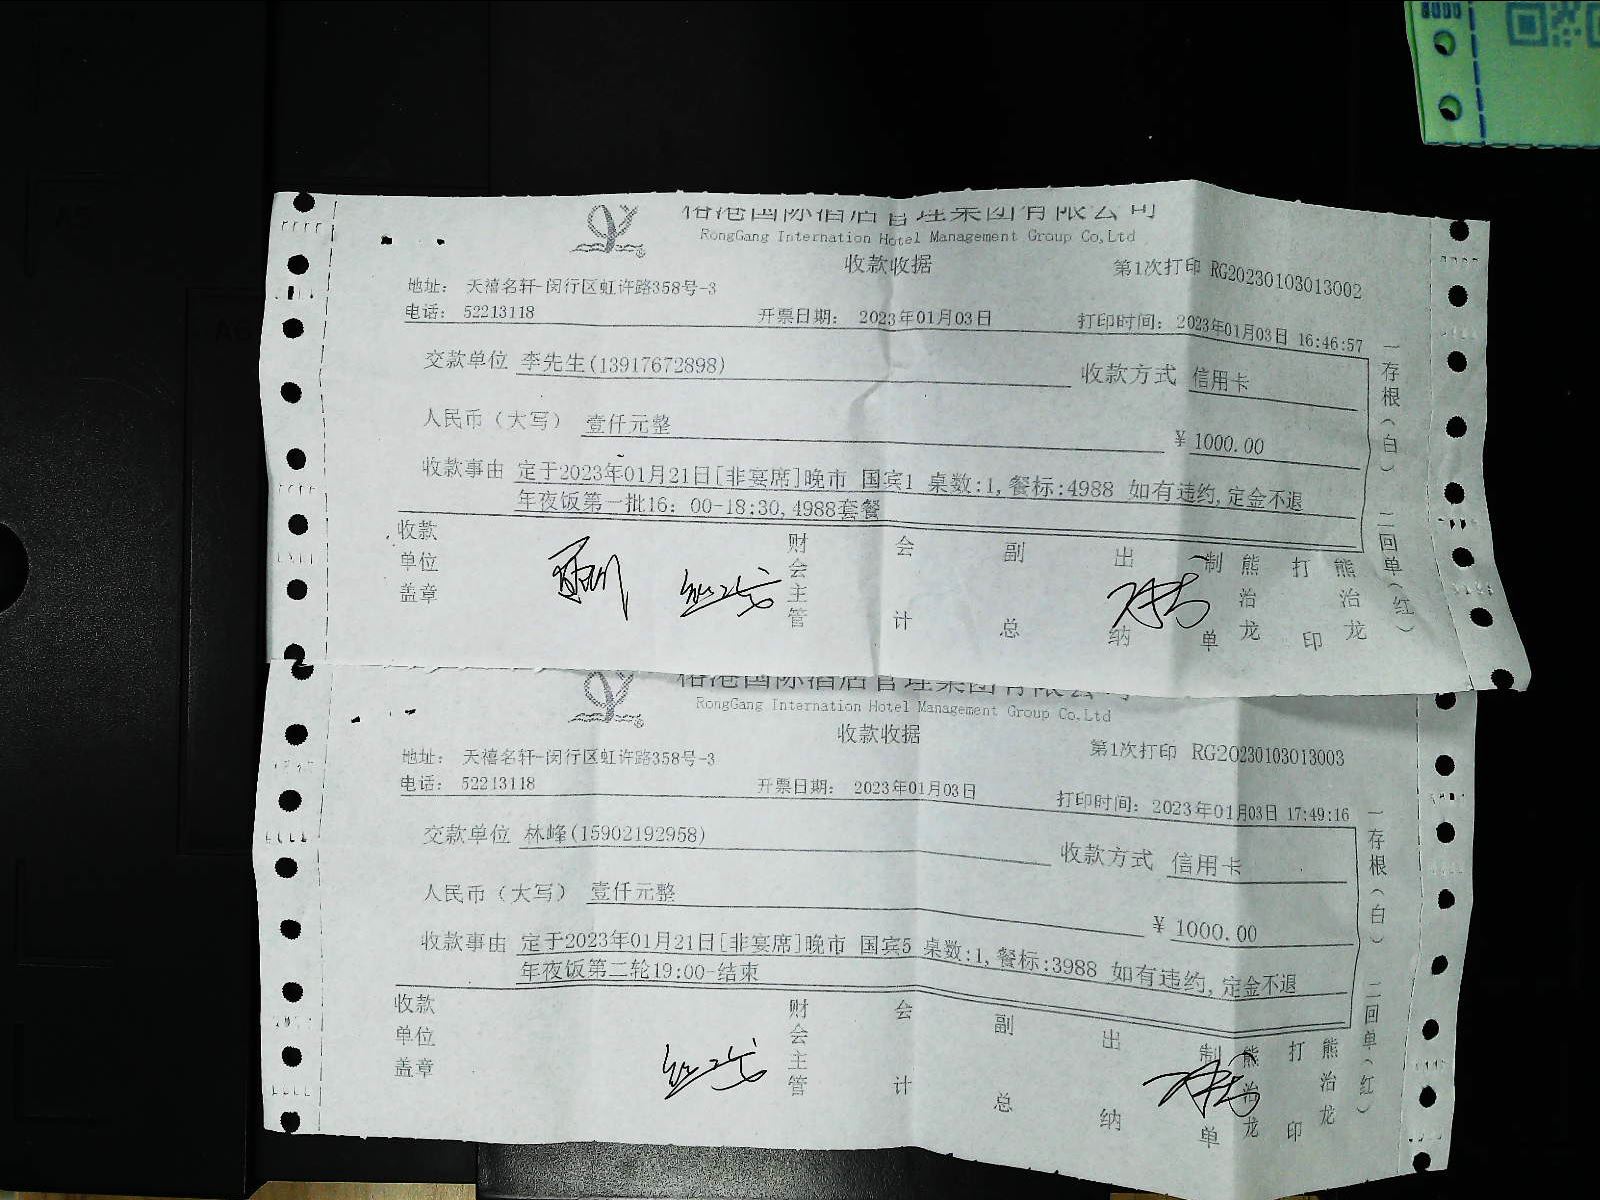 榕港国际酒店管理集团有限公司
RongGang Internation Hotel Management Group Co,Ltd
收款收据
第1次打印 RG20230103013002
地址： 天禧名轩-闵行区虹许路358号-3
电话： 52213118 开票日期： 2023年01月03日 打印时间：2023年01月03日 16:46:57
交款单位 李先生(13917672898) 收款方式 信用卡
人民币（大写） 壹仟元整 ￥ 1000.00
收款事由 定于2023年01月21日[非宴席]晚市 国宾1 桌数:1,餐标:4988 如有违约,定金不退
年夜饭第一批16：00-18:30,4988套餐
收款单位盖章 财会主管 会计 副总 出纳 制单 熊治龙 打印 熊治龙
一存根（白） 二回单（红）
榕港国际酒店管理集团有限公司
RongGang Internation Hotel Management Group Co,Ltd
收款收据
第1次打印 RG20230103013003
地址： 天禧名轩-闵行区虹许路358号-3
电话： 52213118 开票日期： 2023年01月03日 打印时间：2023年01月03日 17:49:16
交款单位 林峰(15902192958) 收款方式 信用卡
人民币（大写） 壹仟元整 ￥ 1000.00
收款事由 定于2023年01月21日[非宴席]晚市 国宾5 桌数:1,餐标:3988 如有违约,定金不退
年夜饭第二轮19:00-结束
收款单位盖章 财会主管 会计 副总 出纳 制单 熊治龙 打印 熊治龙
一存根（白） 二回单（红）